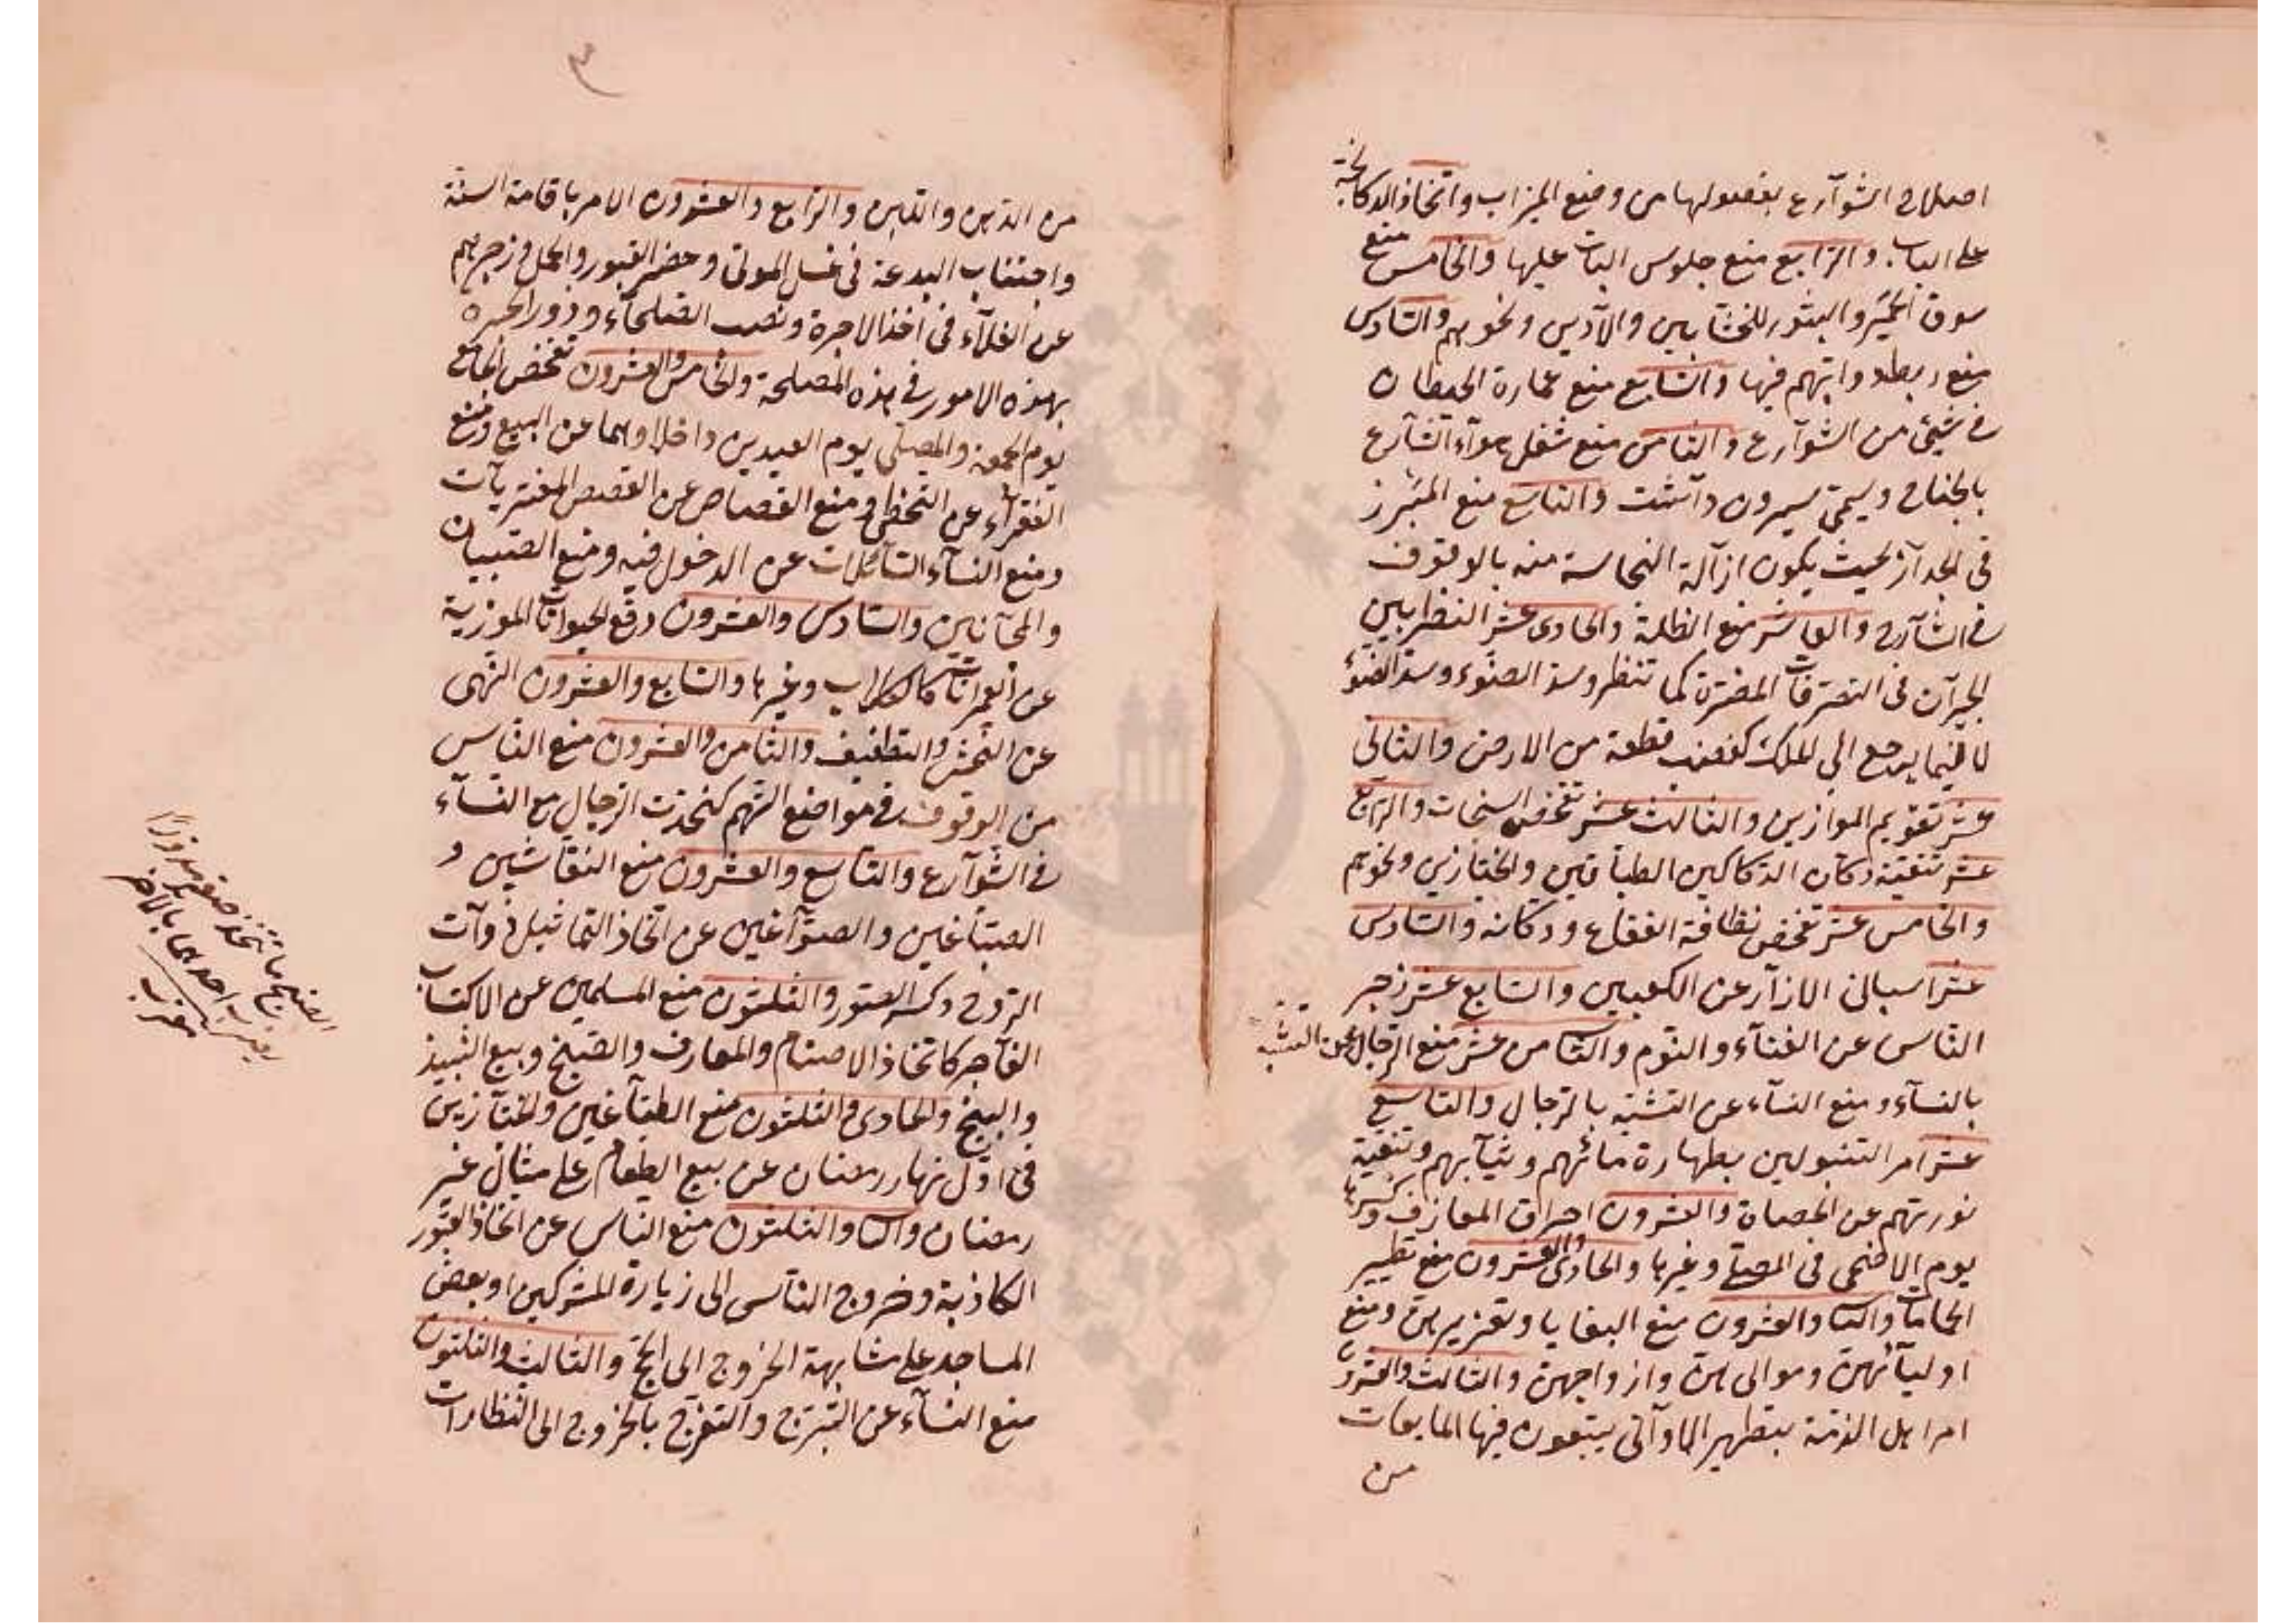 اصلاح الشوآرع بفصولها من وضع الميزاب واتخاذ الدكانجة
على الباب والرابع منع جلوس الباعة عليها والخامس منع
سوق الحمير والبثور للخشابين والآدمين ونحوهم والسادس
منع ربط دوابهم فيها والسابع منع عمارة الحيطان
في شيئ من الشوآرع والثامن منع شغل هوآء الشآرع
بالجناح ويسمى بيرون داشت والتاسع منع المبرز
في الجدآر بحيث يكون ازآلة النجاسة منه بالوقوف
في الشآرع والعاشر منع الظلة والحادى عشر النظر بين
الجيرآن في التصرفات المضرة كما تنظر وسد الضوء وسد الضوء
لا فيما يرجع الى الملك كغصب قطعة من الارض والثانى
عشر تقويم الموازين والثالث عشر تفحص السنجات والرابع
عشر تنقية دكان الدكاكين الطباخين والخبازين ونحوهم
والخامس عشر تفحص نظافة الفقاع ودكانه والسادس
عشر اسبال الازآر عن الكعبين والسابع عشر زجر
الناس عن الغنآء والنوم والثامن عشر منع الرجال عن التشبه
بالنسآء ومنع النسآء عن التشبه بالرجال والتاسع
عشر امر التنبولين بطهارة مائهم وثيآبهم وتنقية
نورتهم عن الحصاة والعشرون احراق المعازف وكسرها
يوم الاضحى في المصلى وغيرها والحادى والعشرون منع تطيير
الحمامات والثا والعشرون منع البغايا وتعزيرهن ومنع
اوليآئهن وموالى هن وازواجهن والثالث والعشرون
امر اهل الذمة بتطهير الماوآنى يبتعون فيها المايعات
من
من الدهن واللبن والرابع والعشرون الامر باقامة السنة
واجتناب البدعة في غسل الموتى وحفر القبور والحمل وزجرهم
عن الغلآء في اخذ الاجرة ونصب الصلحآء وذور الخبرة
بهذه الامور في هذه المصلحة والخامس والعشرون تفحص الجامع
يوم الجمعة والمصلى يوم العيدين داخلاوهما عن البيع ومنع
الفقرآء عن التخطى ومنع القصاص عن القصص المفتريآت
ومنع النسآء السآئلات عن الدخول فيه ومنع الصبيان
والمجآنين والسادس والعشرون دفع الحيوانآت الموزية
عن العمرانات كالكلاب وغيرها والسابع والعشرون النهى
عن النجش والتطفيف والثامن والعشرون منع الناس
من الوقوف في مواضع التهم كتحدث الرجال مع النسآء
في الشوآرع والتاسع والعشرون منع النقاشين و
الصباغين والصوآغين عن اتخاذ التماثيل ذوآت
الروح وكسر الصور والثلثون منع المسلمين عن الاكتساب
الفآجر كاتخاذ الاصنام والمعازف والصنج وبيع النبيذ
والبنج والحادى والثلثون منع الطبآخين والخبآزين
في اوّل نهار رمضان عن بيع الطعام على مثال غير
رمضان والثا والثلثون منع الناس عن اتخاذ القبور
الكاذبة وخروج النآس الى زيارة المشركين او بعض
المساجد على مشابهة الخروج الى الحج والثالث والثلثون
منع النسآء عن التبرج والتفرج بالخروج الى النظارات
الصنج ما تتخذ من صفر مدورا
يضرب احدهما بالاخر
مغرب